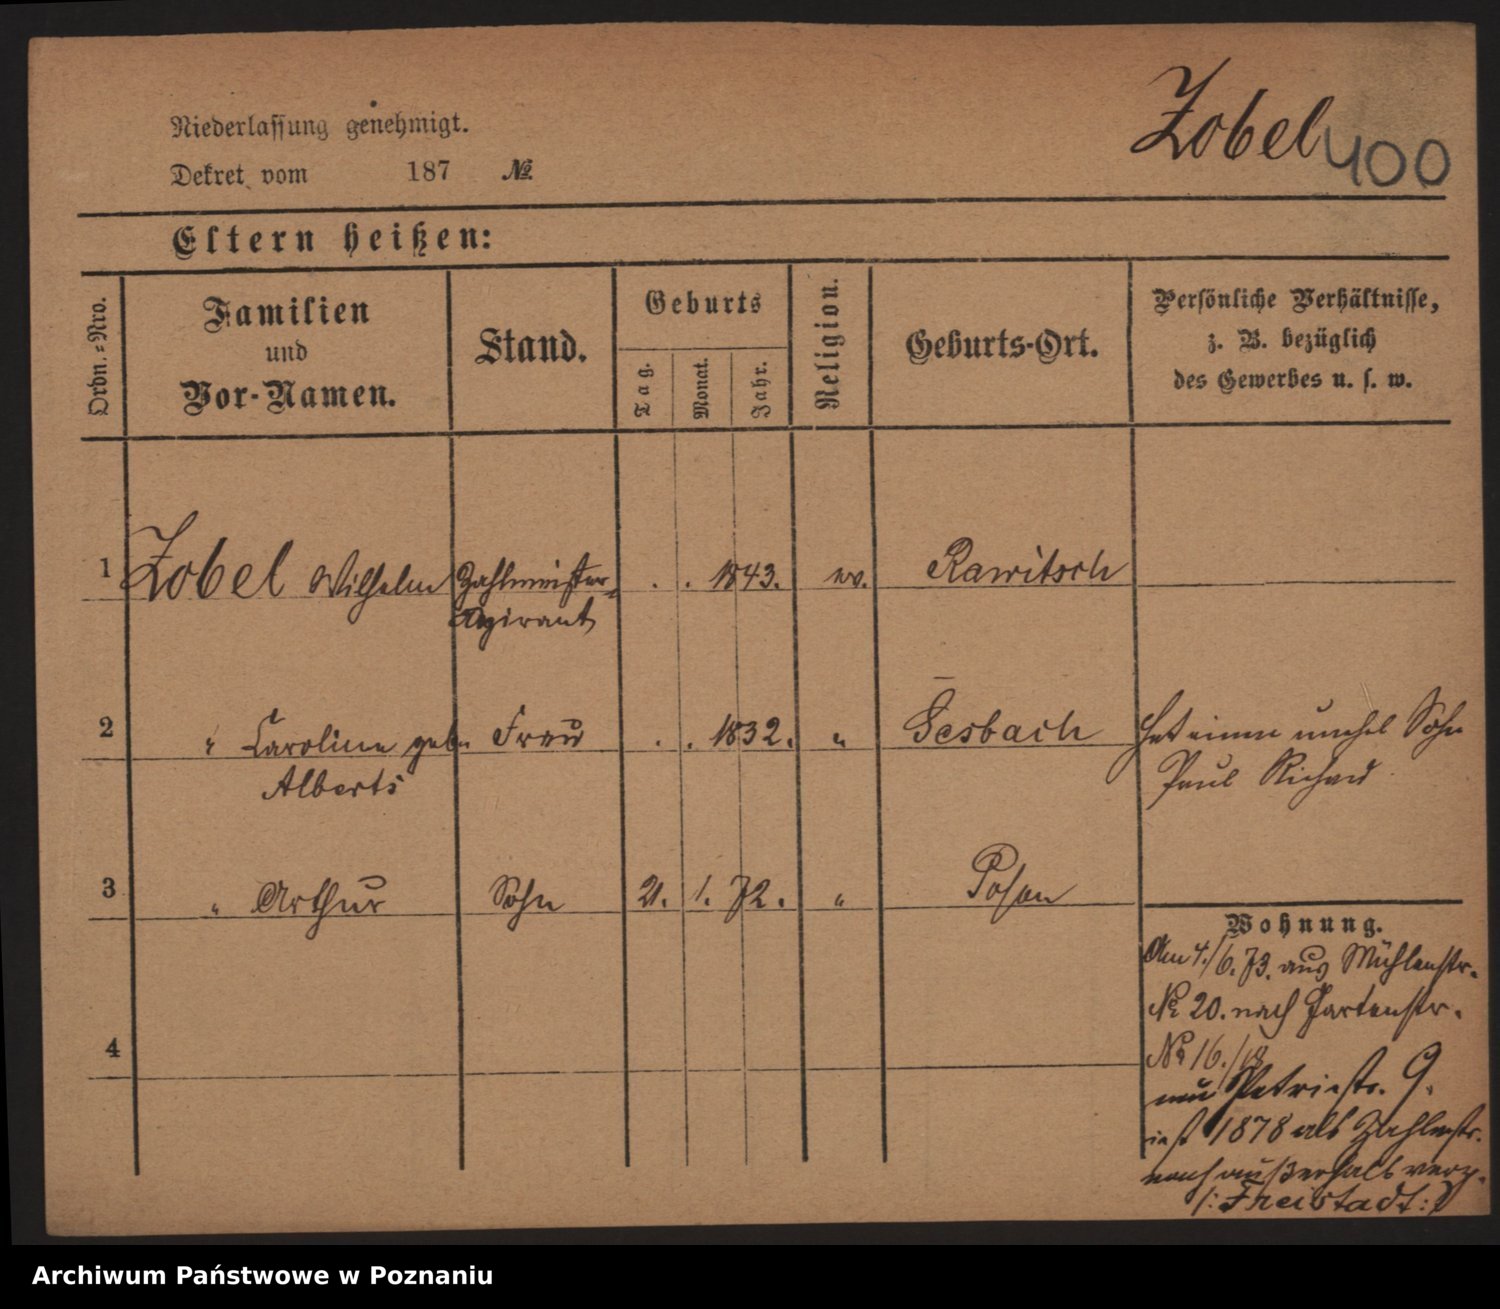 Zobel 400
Niederlassung genehmigt.
Dekret vom 187 №
Eltern heißen:
Ordn.-Nro.
Familien
und
Vor-Namen.
Stand.
Geburts
Tag.
Monat.
Jahr.
Religion.
Geburts-Ort.
Persönliche Verhältnisse,
z. B. bezüglich
des Gewerbes u. s. w.
1 Zobel Wilhelm Zahlmeister- . . 1843. ev. Rawitsch
Aspirant
2 " Caroline geb. Frau . . 1832. " Gesbach Hat einen unehel Sohn
Alberts Paul Richard
3 " Arthur Sohn 21. 1. 72. " Posen
Wohnung.
Am 4./6.73. aus Mühlenstr.
№ 20. nach Gartenstr.
№ 16./18
Petristr. 9.
ist 1878 als Zahlmstr.
nach außerhalb verz.
/: Freistadt :/
4
Archiwum Państwowe w Poznaniu